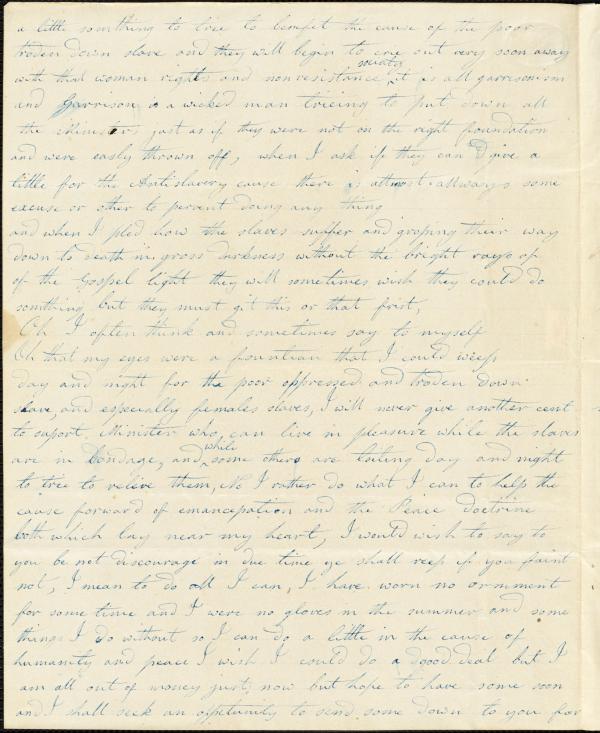 a little something to tree to benefit the cause of the poor
troden down slave and they will begin to crie out very soon away
with that woman rights and nonresistance societys it is all garresonism
and Garrison is a wicked man trieing to put down all
the Ministers just as if they were not on the right foundation
and were easly thrown off, when I ask if they can give a
little for the Antislavery cause there is almost allways some
excuse or other to pervent doing any thing
and when I pled how the slaves suffer and groping their way
down to death in gross darkness without the bright rays of
of the Gospel light they will sometimes wish they could do
something but they must git this or that frist,
Oh I often think and sometimes say to myself
Oh that my eyes were a fountian that I could weep
day and night for the poor oppressed and troden down
slave, and especially females slaves, I will never give another cent
to suport Minister who can live in pleasure while the slaves
are in bondage, and while some others are laboring day and night
to tree to relive them, No I rather do what I can to help the
cause forward of emancepation and the Peace doctrine
both which lay near my heart, I would wish to say to
you be not discourage in due time ye shall reep if you faint
not, I mean to do all I can, I have worn no ornment
for some time and I were no gloves in the summer and some
things I do without so I can do a little in the cause of
humanity and peace I wish I could do a good deal but I
am all out of money just now but hope to have some soon
and I shall seek an oppetunity to send some down to you for